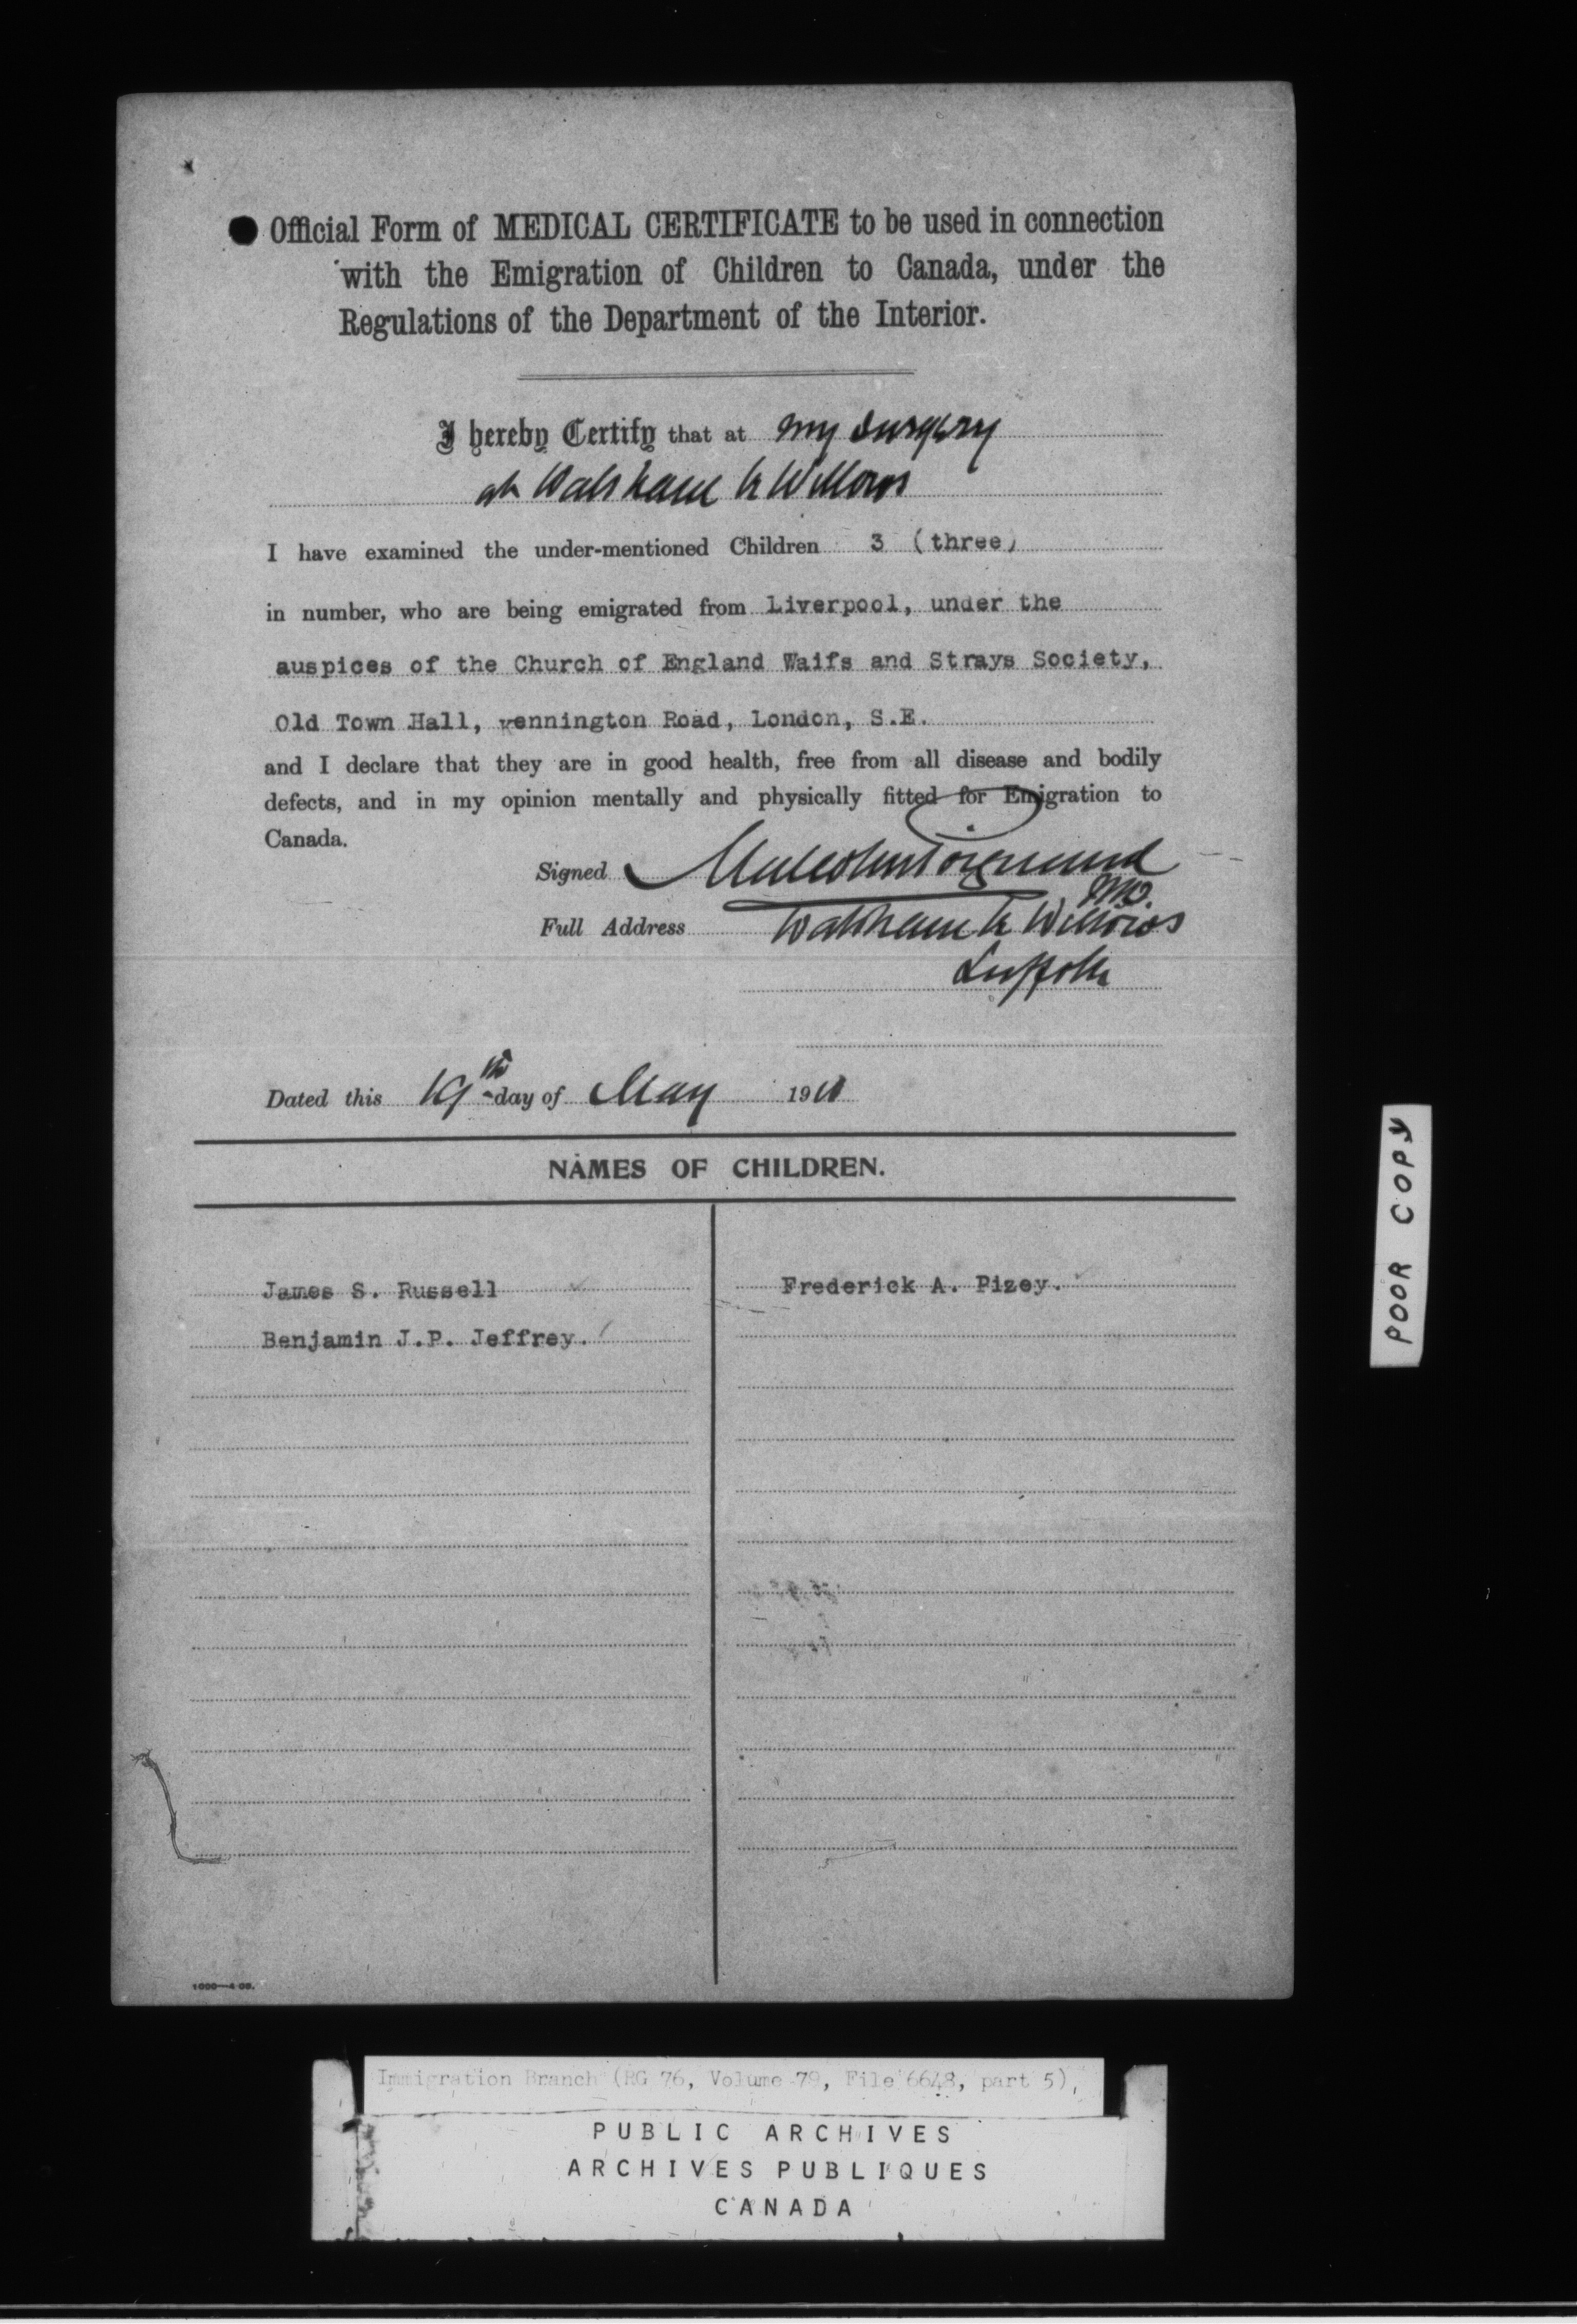 Official Form of MEDICAL CERTIFICATE to be used in connection
with the Emigration of Children to Canada, under the
Regulations of the Department of the Interior.
I hereby Certify that at my surgery
at Walsham le Willows
I have examined the under-mentioned Children 3 (three)
in number, who are being emigrated from Liverpool, under the
auspices of the Church of England Waifs and Strays Society,
Old Town Hall, Kennington Road, London, S.E.
and I declare that they are in good health, free from all disease and bodily
defects, and in my opinion mentally and physically fitted for Emigration to
Canada.
Signed Malcolm
Full Address Walsham le Willows
Suffolk
Dated this 19th day of May 1911
NAMES OF CHILDREN.
James S. Russell
Benjamin J.P. Jeffrey.
Frederick A. Pizey.
POOR COPY
Immigration Branch (RG 76, Volume 79, File 6648, part 5)
PUBLIC ARCHIVES
ARCHIVES PUBLIQUES
CANADA